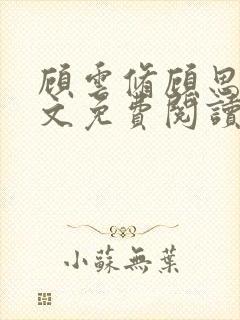 顾雲脩顾思
文免費閱讀
小蘇無葉